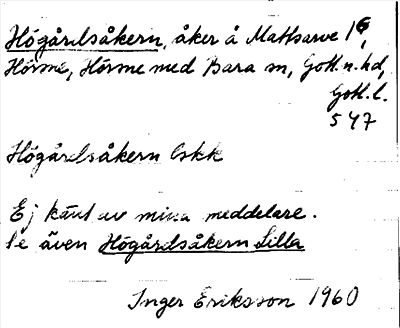 Högårdsåkern, åker å Mattsarve 1G,
Hörsne, Hörsne med Bara sn, Gotl. n. hd,
Gotl. l.
547
Högårdsåkern Cskk
Ej känt av mina meddelare.
Se även Högårdsåkern Lilla
Inger Eriksson 1960